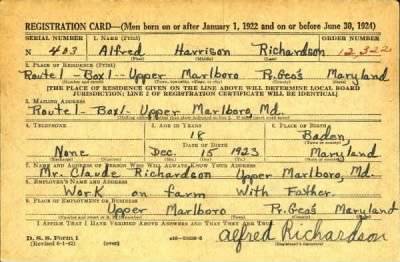 REGISTRATION CARD—(Men born on or after January 1, 1922 and on or before June 30, 1924)
SERIAL NUMBER 1. NAME (Print) ORDER NUMBER
N 403 Alfred Harrison Richardson 12,322
(First) (Middle) (Last)
2. PLACE OF RESIDENCE (Print)
Route 1 - Box 1 -- Upper Marlboro Pr. Geo's Maryland
(Number and street) (Town, township, village, or city) (County) (State)
[THE PLACE OF RESIDENCE GIVEN ON THE LINE ABOVE WILL DETERMINE LOCAL BOARD
JURISDICTION; LINE 2 OF REGISTRATION CERTIFICATE WILL BE IDENTICAL]
3. MAILING ADDRESS
Route 1 - Box 1 - Upper Marlboro, Md.
[Mailing address if other than place indicated on line 2. If same insert word same]
4. TELEPHONE 5. AGE IN YEARS 6. PLACE OF BIRTH
18 Baden,
DATE OF BIRTH (Town or county)
None Dec. 15 1923 Maryland
(Mo.) (Day) (Yr.) (State or country)
7. NAME AND ADDRESS OF PERSON WHO WILL ALWAYS KNOW YOUR ADDRESS
Mr. Claude Richardson Upper Marlboro, Md.
8. EMPLOYER'S NAME AND ADDRESS
Work on farm With Father.
9. PLACE OF EMPLOYMENT OR BUSINESS
Upper Marlboro Pr. Geo's Maryland
(Number and street or R. F. D. number) (Town) (County) (State)
I AFFIRM THAT I HAVE VERIFIED ABOVE ANSWERS AND THAT THEY ARE TRUE.
D. S. S. Form 1
(Revised 6-1-42) (over)
Alfred Richardson
(Registrant's signature)